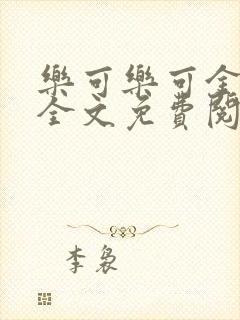 樂可樂可全
全文免費閱
李裊